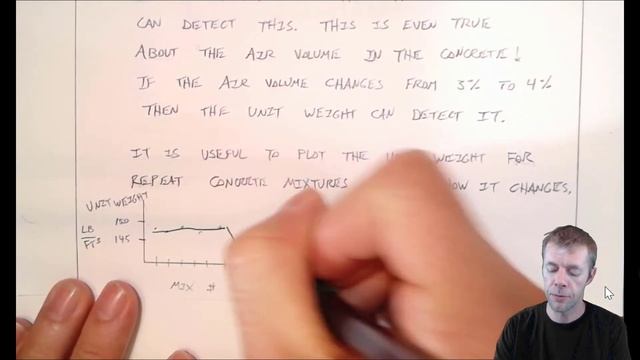 CAN DETECT THIS. THIS IS EVEN TRUE
ABOUT THE AIR VOLUME IN THE CONCRETE!
IF THE AIR VOLUME CHANGES FROM 3% TO 4%
THEN THE UNIT WEIGHT CAN DETECT IT.
IT IS USEFUL TO PLOT THE WEIGHT FOR
REPEAT CONCRETE MIXTURES HOW IT CHANGES,
UNIT WEIGHT
LB
FT³
150
145
MIX #